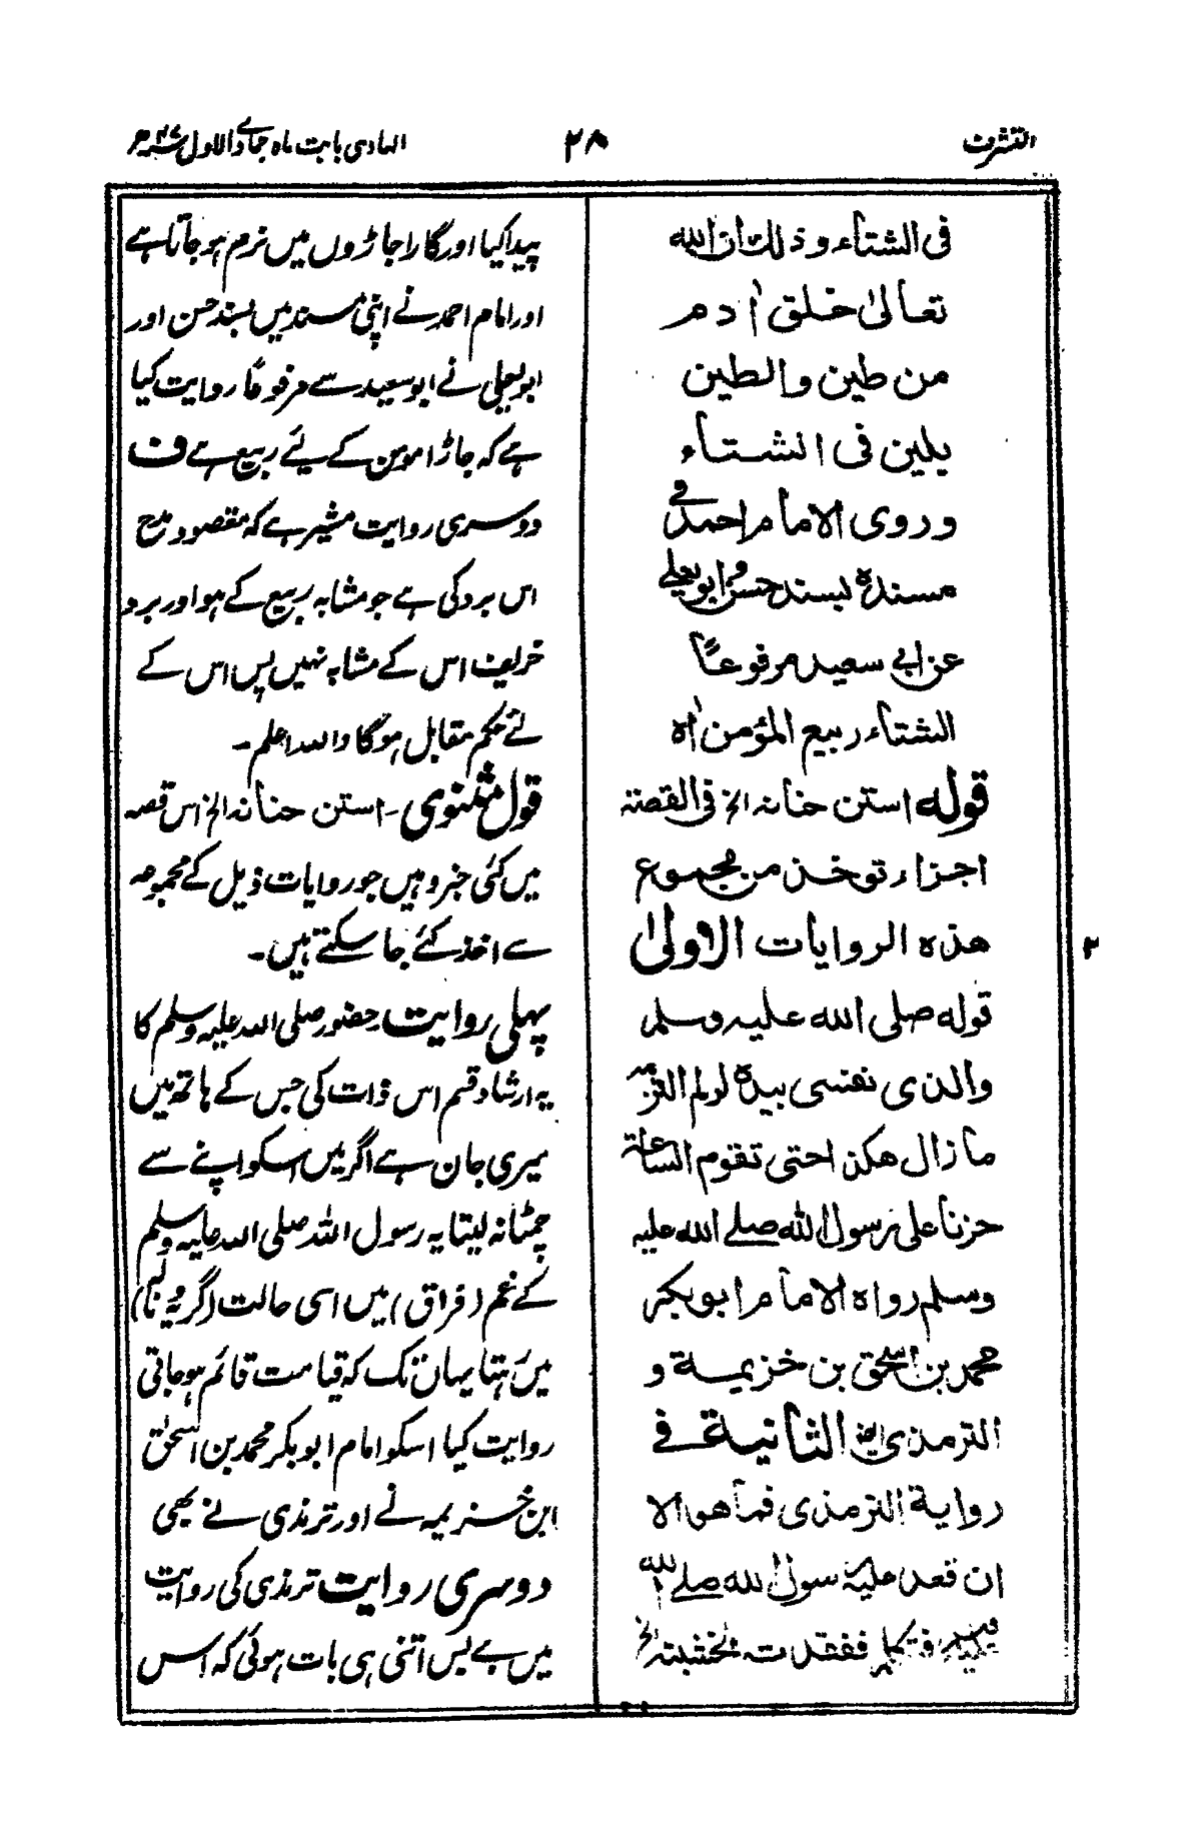 التشرف
۲۸
الہادی بابت ماہ جمادے الاول
فی الشتاء و ذلک ان اللہ
تعالیٰ خلق اٰدم
من طین والطین
یلین فی الشتاء
وروی الامام احمد فی
مسندہ بسند حسن وابو یعلے
عن ابی سعید مرفوعاً
الشتاء ربیع المؤمن اہ
قولہ استن حنانہ الخ فی القصتہ
اجزاء توخذ من مجموع
ھذہ الروایات الاولیٰ
قولہ صلی اللہ علیہ وسلم
والذی نفسی بیدہ لو لم التزمہ
ما زال ھکذا حتی تقوم الساعۃ
حزنا علی رسول اللہ صلے اللہ علیہ
وسلم رواہ الامام ابو بکر
محمد بن اسحٰق بن خزیمۃ و
الترمذی ایضا الثانیۃ فے
روایۃ الترمذی فما ھو الا
ان قعد علیہ رسول اللہ صلے اللہ
علیہ وسلم ففقدت الخشبتہ الخ
۲
پیدا کیا اور گارا جاڑوں میں نرم ہو جاتا ہے
اور امام احمد نے اپنی مسند میں بسند حسن اور
ابو یعلی نے ابو سعید سے مرفوعًا روایت کیا
ہے کہ جاڑا مومن کے لیے ربیع ہے ف
دوسری روایت مشیر ہے کہ مقصود مدح
اس برد کی ہے جو مشابہ ربیع کے ہو اور برد
خریف اس کے مشابہ نہیں پس اس کے
لئے حکم مقابل ہوگا واللہ اعلم ۔
قول مثنوی ۔ استن حنانہ الخ اس قصہ
میں کئی جزو ہیں جو روایات ذیل کے مجموعہ
سے اخذ کئے جا سکتے ہیں ۔
پہلی روایت حضور صلی اللہ علیہ وسلم کا
یہ ارشاد قسم اس ذات کی جس کے ہاتھ میں
میری جان ہے اگر میں اسکو اپنے سے
چمٹا نہ لیتا یہ رسول اللہ صلی اللہ علیہ وسلم
کے غم (فراق) میں اسی حالت (گریہ وبکا)
میں رہتا یہاں تک کہ قیامت قائم ہو جاتی
روایت کیا اسکو امام ابو بکر محمد بن اسحٰق
ابن خزیمہ نے اور ترمذی نے بھی
دوسری روایت ترمذی کی روایت
میں ہے بس اتنی ہی بات ہوئی کہ اس